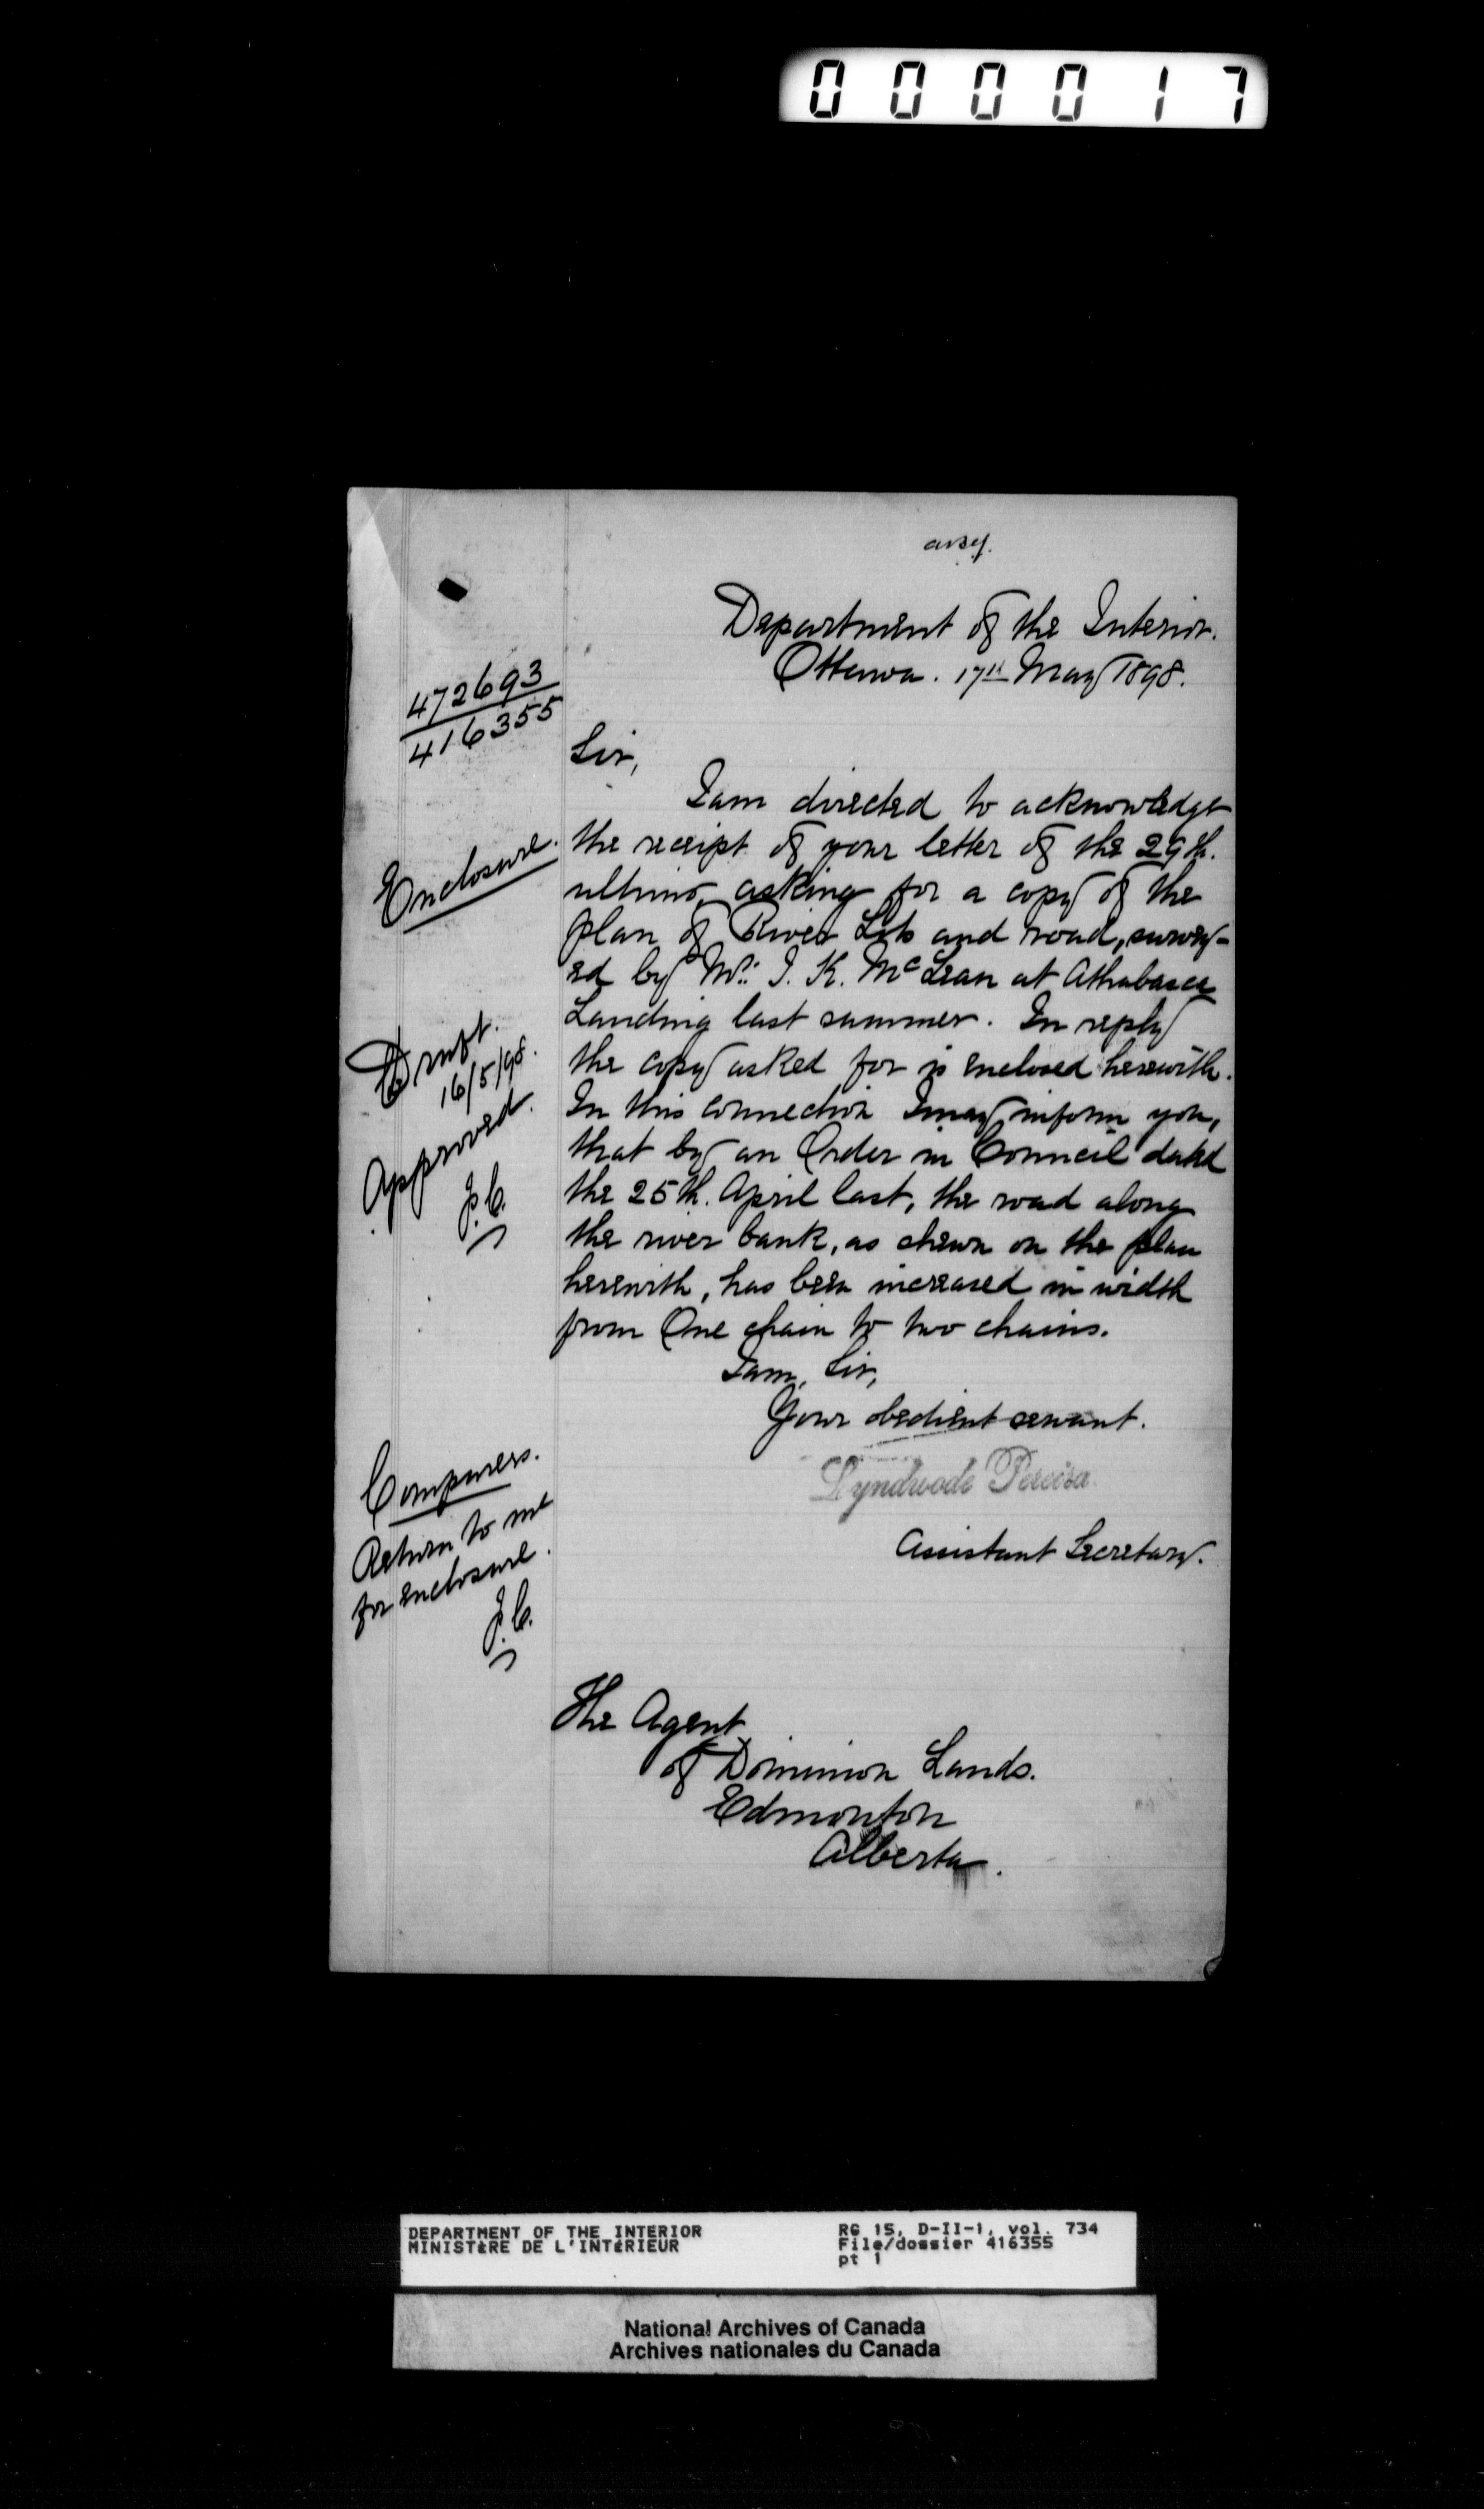 000017
Department of the Interior.
Ottawa. 17th May 1898.
472693
416355
Sir,
I am directed to acknowledge
the receipt of your letter of the 29th.
ultimo, asking for a copy of the
plan of River Lots and road, survey-
ed by Mr. J. K. McLean at Athabasca
Landing last summer. In reply
the copy asked for is enclosed herewith.
In this connection I may inform you,
that by an Order in Council dated
the 25th. April last, the road along
the river bank, as shewn on the plan
herewith, has been increased in width
from One chain to two chains.
I am, Sir,
Your obedient servant.
Lyndwode Pereira
Assistant Secretary.
Enclosure.
Draft.
16/5/98.
Approved.
J.C.
Comparers.
Return to me
for enclosure.
J.C.
The Agent
of Dominion Lands.
Edmonton
Alberta.
DEPARTMENT OF THE INTERIOR
MINISTÈRE DE L'INTÉRIEUR
RG 15, D-II-1, vol. 734
File/dossier 416355
pt 1
National Archives of Canada
Archives nationales du Canada